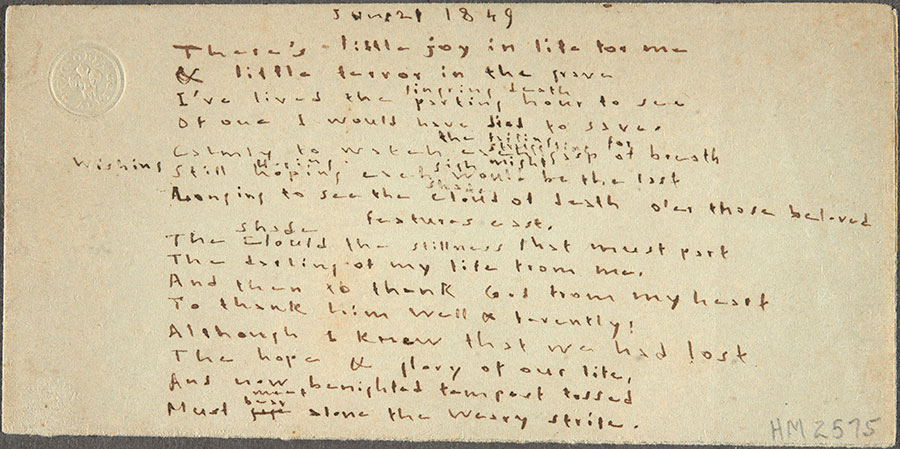 June 21 1849
There's little joy in life for me
& little terror in the grave
lingring death
I've lived the parting hour to see
Of one I would have died to save.
the failing
for
Calmly to watch each gasp of breath
Wishing
hoping
sigh might
Still hoping each would be the last
shade
Longing to see the cloud of death o'er those beloved
features cast,
shade
The cloud the stillness that must part
The darling of my life from me,
And then to thank God from my heart
To thank him well & fervently;
Although I knew that we had lost
The hope & glory of our life,
And now, benighted tempest tossed
bear
Must alone the weary strife.
HM 2575